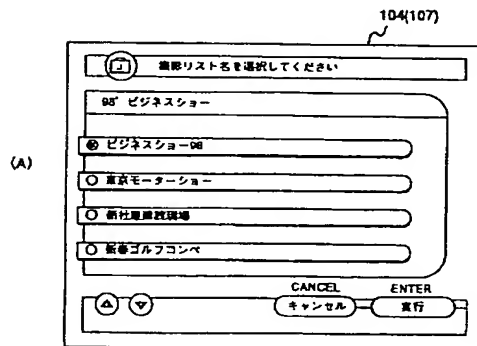 104(107)
撮影リスト名を選択してください
98' ビジネスショー
(A)
ビジネスショー98
東京モーターショー
新社屋建設現場
新春ゴルフコンペ
CANCEL
ENTER
キャンセル
実行